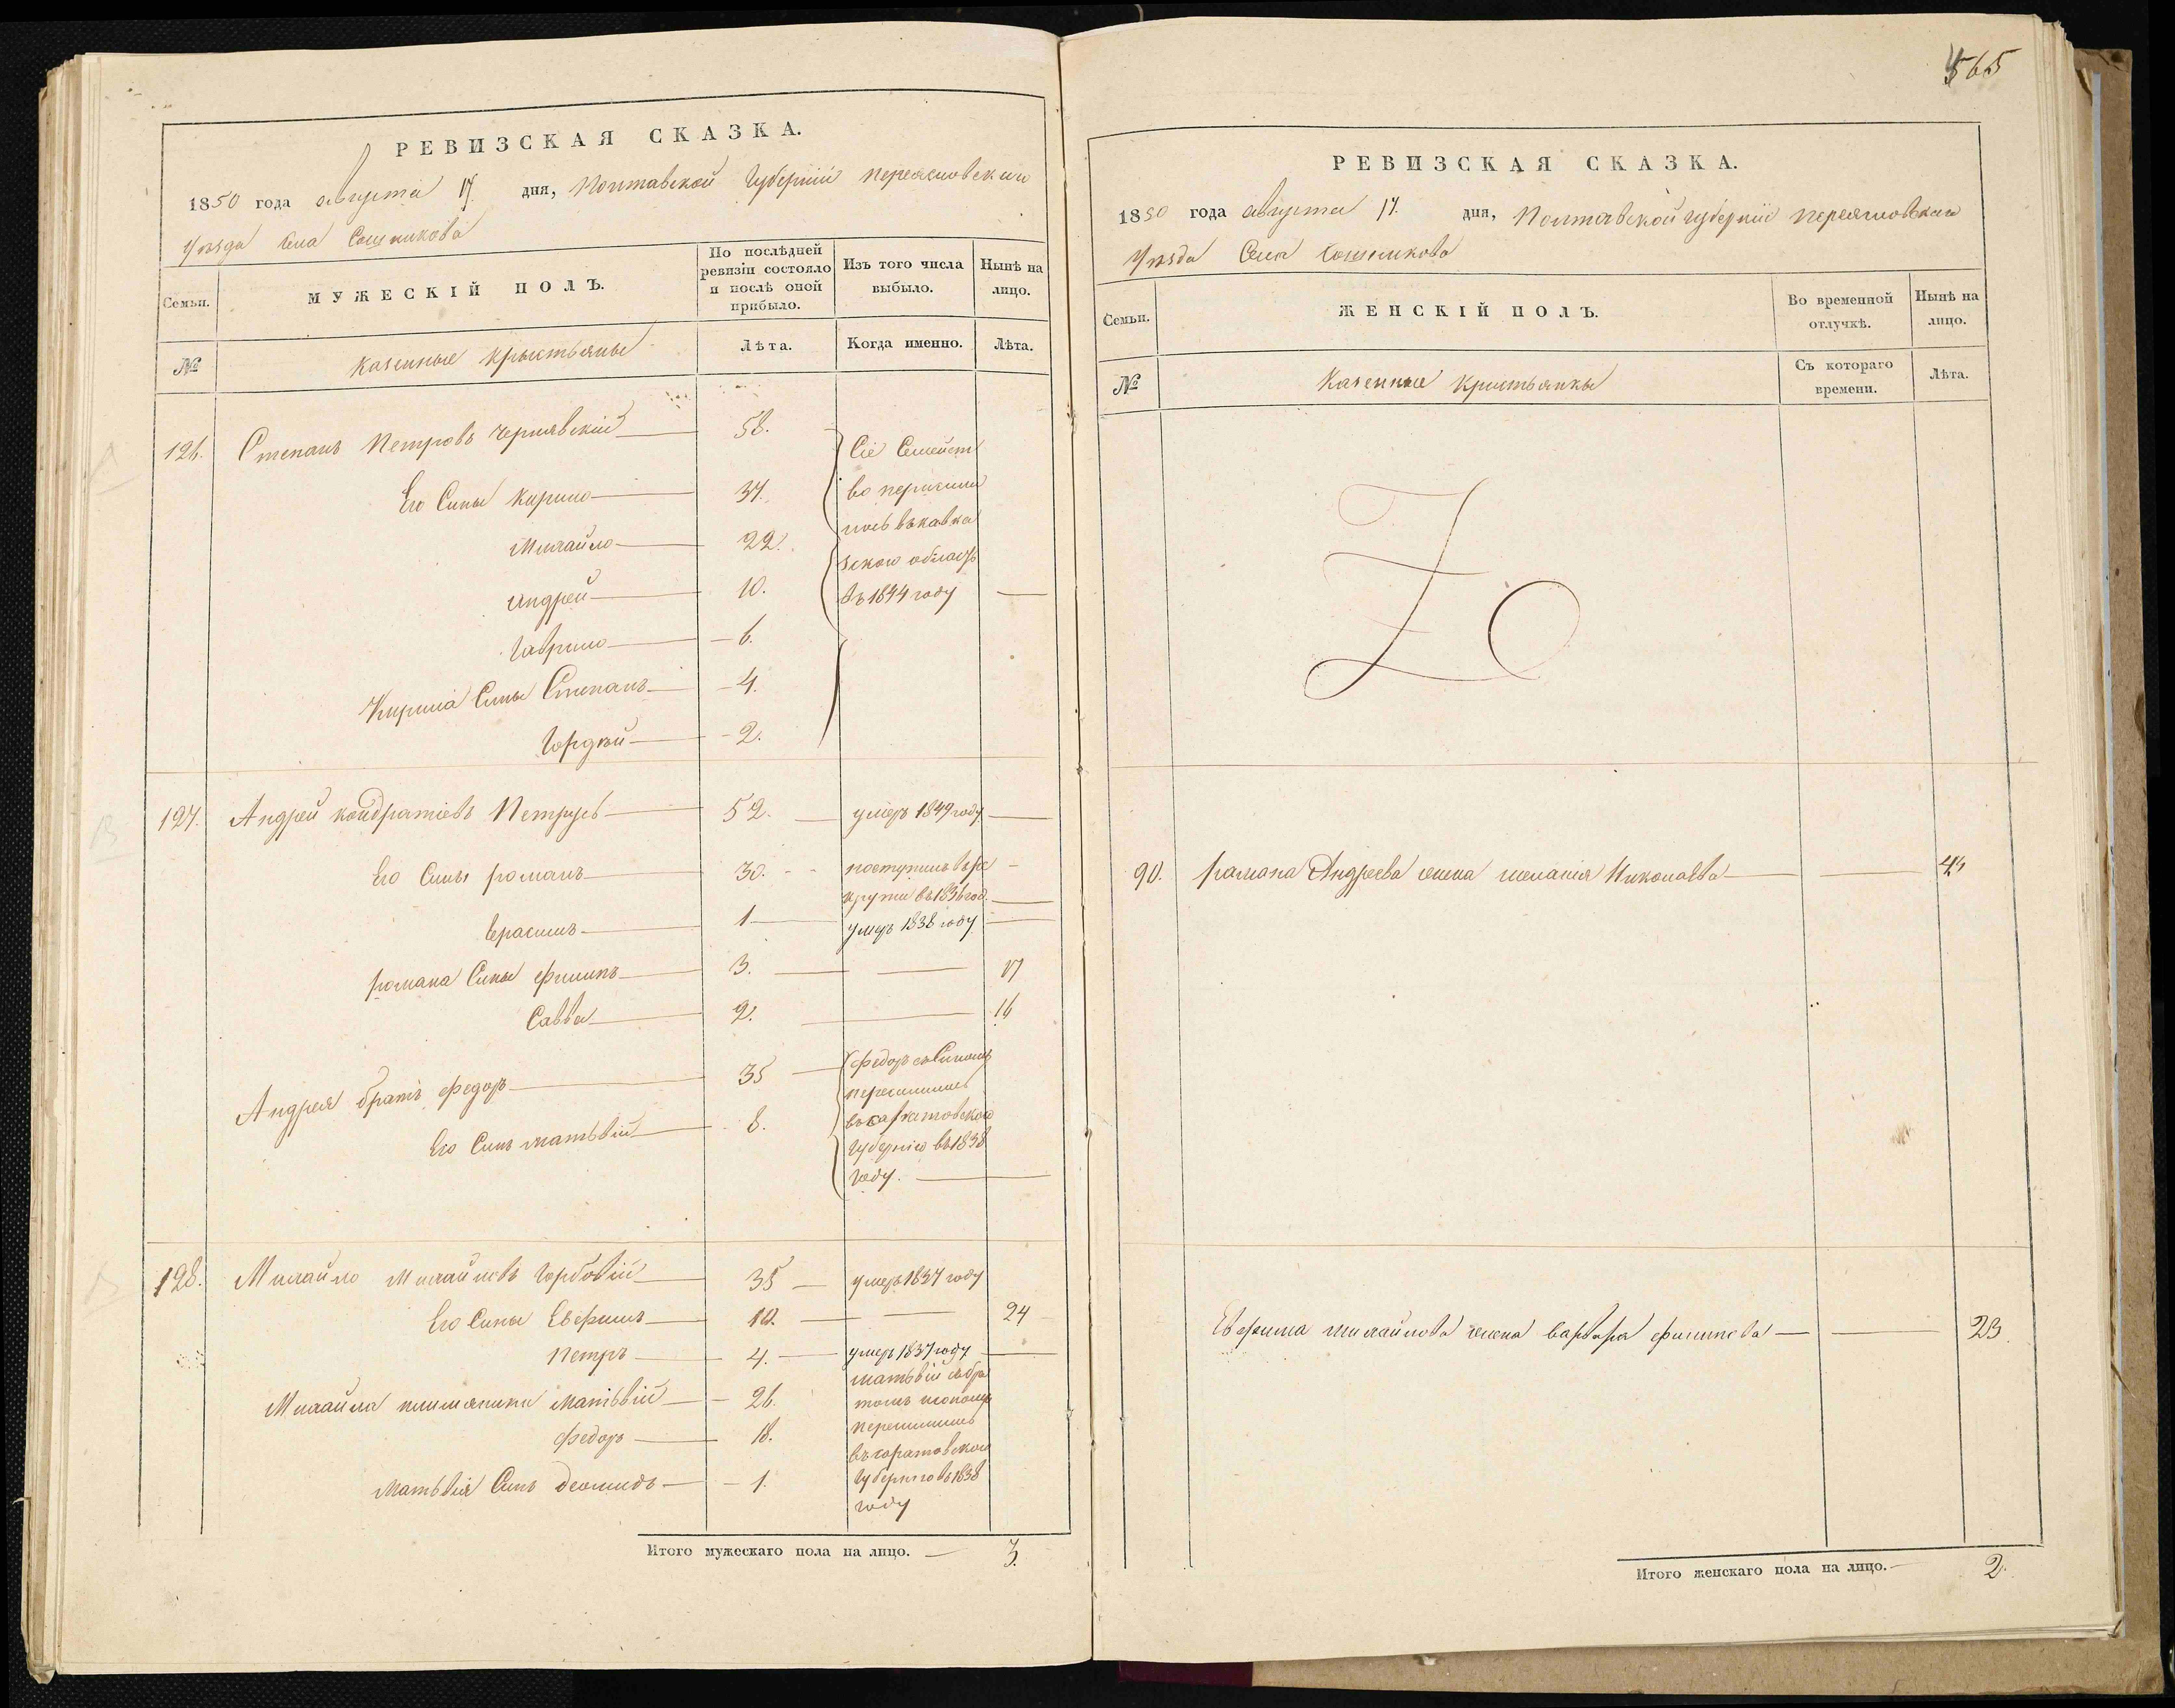 565
РЕВИЗСКАЯ СКАЗКА.
1850 года августа 17. дня, Полтавской Губернии Переясловскаго
Уѣзда Села Сошникова
Семьи.
МУЖЕСКІЙ ПОЛЪ.
По послѣдней ревизіи состояло и послѣ оной прибыло.
Изъ того числа выбыло.
Нынѣ на лицо.
№
казенные крыстьяны
Лѣта.
Когда именно.
Лѣта.
126. Степанъ Петровъ Чернявскій 58.
Его Сыны Кирило 37.
Михайло 22.
Андрей 10.
Гаврило 6.
Кирила Сыны Степанъ 4.
Гордѣй 2.
Сіе Семейст
во
въ 1844 году
127. Андрей Кондратіевъ Петрусь 52. умеръ 1849 году
Его Сыны романъ 30. поступилъ въ ре
круты въ 1836 год.
Герасимъ 1 умеръ 1838 году
романа Сыны филипъ 3. 17
Савва 2. 16
Андрея братъ федоръ 35
Его Сынъ матьвій 8.
федоръ съ Сыномъ
переселились
Губернію въ 1838
году.
128. Михайло Михайловъ Горбовій 35 умеръ 1837 году
Его Сыны Евфимъ 10. 24
Петръ 4. умеръ 1837 году
Михайла племяники матьвій 26.
федоръ 18.
матьвія Сынъ Деомидъ 1.
матьвій съ бра
томъ
въ саратовскою
Губернію въ 1838
году
Итого мужескаго пола на лицо. 3.
РЕВИЗСКАЯ СКАЗКА.
1850 года августа 17. дня, Полтавской губерніи переясловскаго
Уѣзда Села Сошникова
Семьи.
ЖЕНСКІЙ ПОЛЪ.
Во временной отлучкѣ.
Нынѣ на лицо.
№
Казенные крыстьянки
Съ котораго времени.
Лѣта.
90. рамана Андреева жена меланія Николаева 45
Евфима михайлова жена варвара филипова 23.
Итого женскаго пола на лицо. 2.